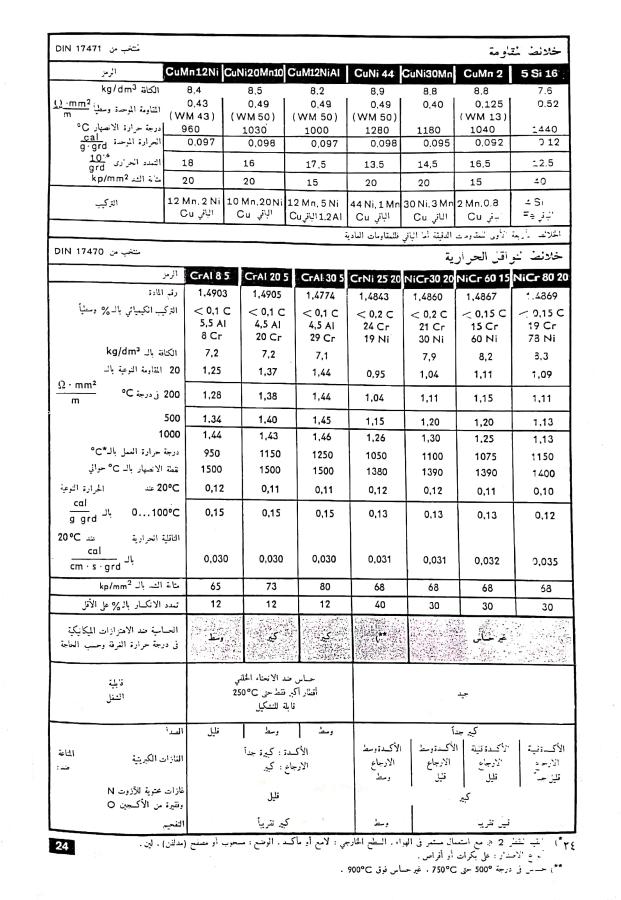 خلائط مقاومة منتخب من DIN 17471
الرمز CuMn12Ni CuNi20Mn10 CuM12NiAl CuNi 44 CuNi30Mn CuMn 2 5 Si 16
الكثافة kg/dm³ 8,4 8,5 8,2 8,9 8,8 8,8 7.6
المقاومة الموحدة وسطياً Ω·mm²/m 0,43 0,49 0,49 0,49 0,40 0,125 0.52
(WM 43) (WM 50) (WM 50) (WM 50) (WM 13)
درجة حرارة الانصهار °C 960 1030 1000 1280 1180 1040 1440
الحرارة الموحدة cal/g·grd 0,097 0,098 0,097 0,098 0,095 0,092 0 12
التمدد الحراري 10⁻⁶/grd 18 16 17,5 13,5 14,5 16,5 12.5
متانة الشد kp/mm² 20 20 15 20 20 15 40
التركيب 12 Mn, 2 Ni 10 Mn,20Ni 12 Mn, 5 Ni 44 Ni,1 Mn 30 Ni,3 Mn 2 Mn,0.8 Si
الباقي Cu الباقي Cu Cu الباقي 1.2Al الباقي Cu الباقي Cu باقي Cu الباقي
الخلائط الأربعة الأولى للمقاومات الدقيقة أما الباقي فللمقاومات العادية
خلائط نواقل الحرارية منتخب من DIN 17470
الرمز CrAl 8 5 CrAl 20 5 CrAl 30 5 CrNi 25 20 NiCr30 20 NiCr 60 15 NiCr 80 20
رقم المادة 1,4903 1,4905 1,4774 1,4843 1,4860 1,4867 1.4869
التركيب الكيميائي بالـ % وسطياً < 0,1 C < 0,1 C < 0,1 C < 0,2 C < 0,2 C < 0,15 C < 0.15 C
5,5 Al 4,5 Al 4,5 Al 24 Cr 21 Cr 15 Cr 19 Cr
8 Cr 20 Cr 29 Cr 19 Ni 30 Ni 60 Ni 78 Ni
الكثافة بالـ kg/dm³ 7,2 7,2 7,1 7,9 8,2 8.3
20 المقاومة النوعية بالـ 1,25 1,37 1,44 0,95 1,04 1,11 1,09
Ω · mm²/m 200 في درجة °C 1,28 1,38 1,44 1,04 1,11 1,15 1,11
500 1,34 1,40 1,45 1,15 1,20 1,20 1.13
1000 1,44 1,43 1,46 1,26 1,30 1,25 1,13
درجة حرارة العمل بالـ °C* 950 1150 1250 1050 1100 1075 1150
نقطة الانصهار بالـ °C حوالي 1500 1500 1500 1380 1390 1390 1400
الحرارة النوعية عند 20°C 0,12 0,11 0,11 0,12 0,12 0,11 0,10
cal/g grd 0...100°C 0,15 0,15 0,15 0,13 0,13 0,13 0,12
الناقلية الحرارية عند 20°C
بالـ cal/cm · s · grd 0,030 0,030 0,030 0,031 0,031 0,032 0,035
متانة الشد بالـ kp/mm² 65 73 80 68 68 68 68
تمدد الانكسار بالـ % على الأقل 12 12 12 40 30 30 30
الحساسية ضد الاهتزازات الميكانيكية
في درجة حرارة الغرفة وحسب الحاجة وسط كبير كبير **) غير حساس
قابلية الشغل
حساس ضد الانحناء الخلفي
أقطار أكبر فقط حتى 250°C
قابلة للتشكيل
جيد
المتاعة ضد:
الصدأ قليل وسط وسط كبير جداً
الغازات الكبريتية
الأكسدة : كبيرة جداً
الارجاع : كبير
الأكسدة وسط الأكسدة وسط الأكسدة قليلة الأكسدة قليلة
الارجاع الارجاع الارجاع الارجاع
وسط قليل قليل قليل جداً
غازات محتوية للآزوت N
وفقيرة من الأكسجين O قليل كبير
التفحيم كبير تقريباً وسط قليل تقريباً
*) لقطر 2 مم مع استعمال مستمر في الهواء . السطح الخارجي : لامع أو مأكسد . الوضع : مسحوب أو مصفح (مدلفن) ، لين .
نوع الاصدار : على بكرات أو أقراص .
**) حساس في درجة °500 حتى 750°C ، غير حساس فوق 900°C .
٢٤
24